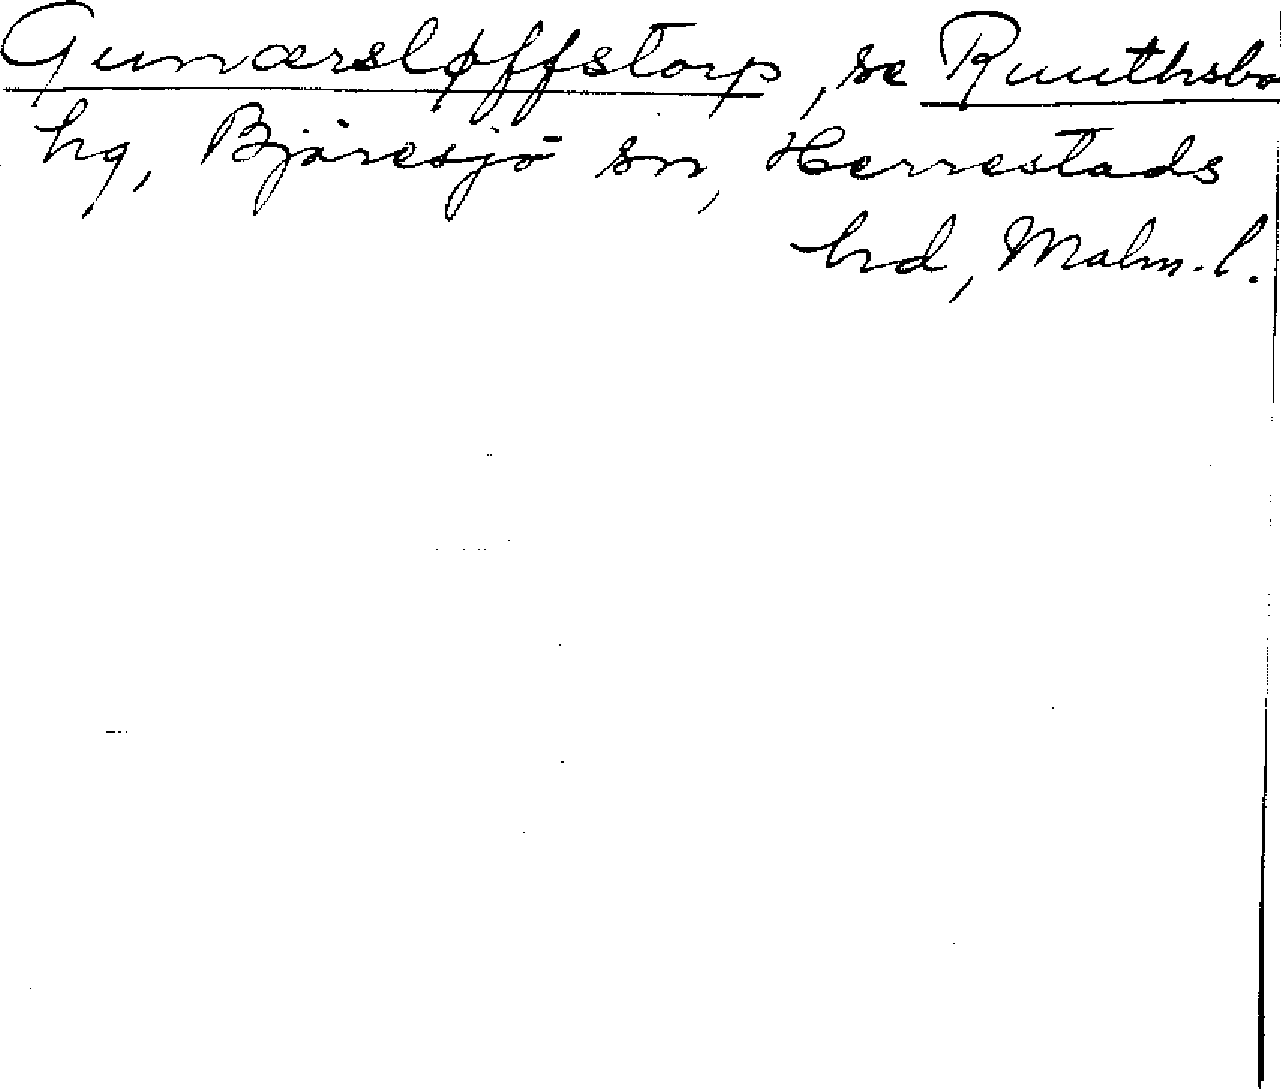 Gunnersløffstorp, se Ruuthsbo
hg, Bjäresjö sn, Herrestads
hd, Malm. l.